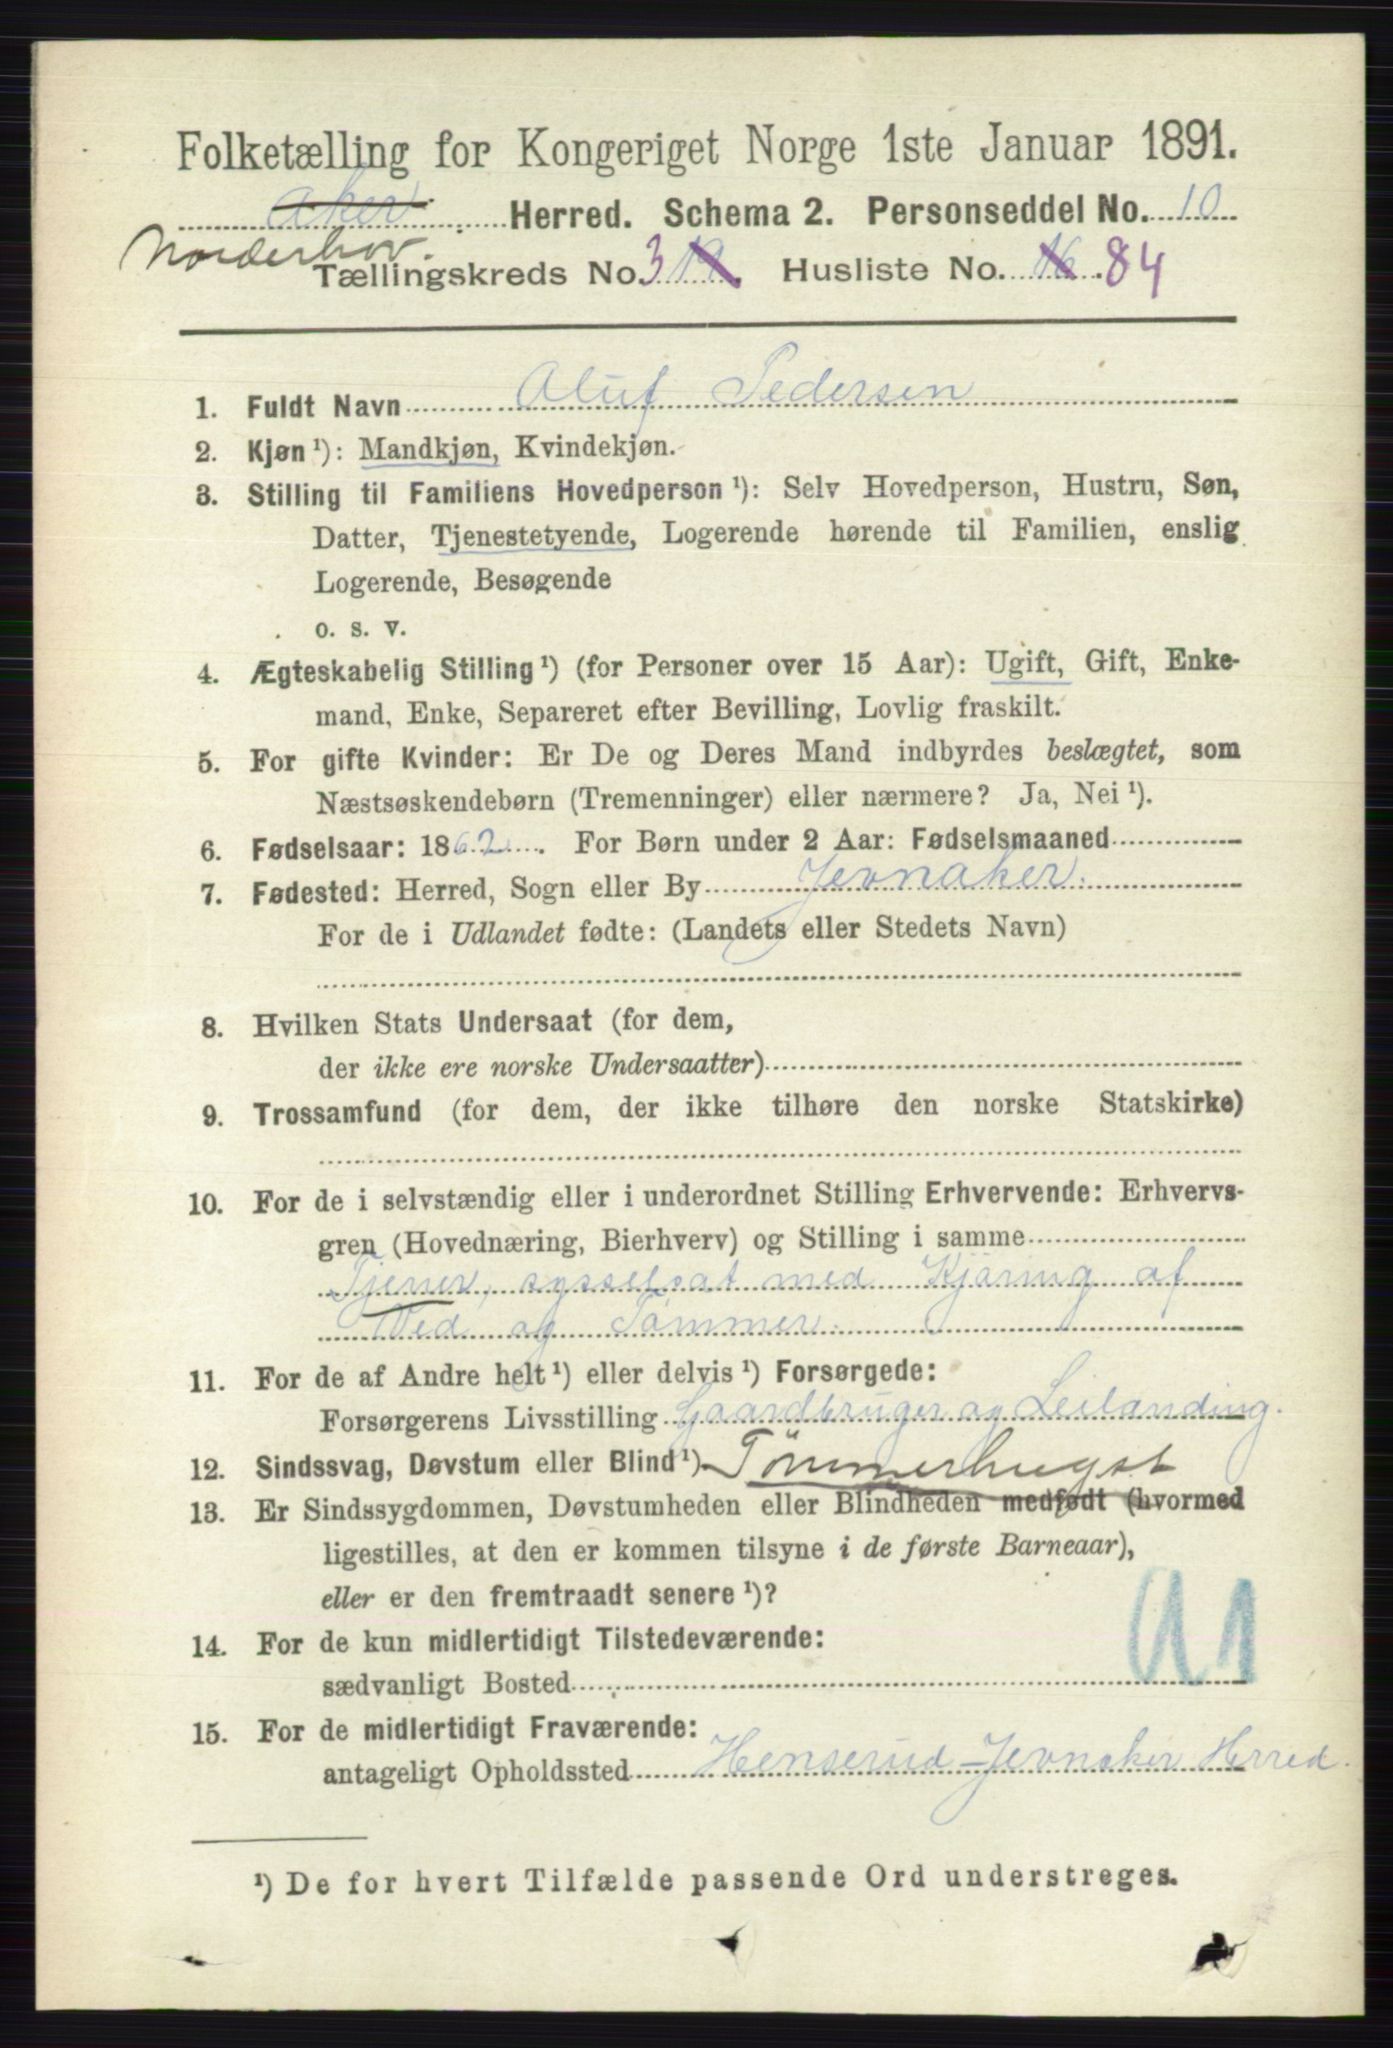 Folketælling for Kongeriget Norge 1ste Januar 1891.
Aker Herred. Schema 2. Personseddel No. 10
Norderhov.
Tællingskreds No. 3 19. Husliste No. 16. 84
1. Fuldt Navn Oluf Pedersen
2. Kjøn ¹): Mandkjøn, Kvindekjøn.
3. Stilling til Familiens Hovedperson ¹): Selv Hovedperson, Hustru, Søn,
Datter, Tjenestetyende, Logerende hørende til Familien, enslig
Logerende, Besøgende
o. s. v.
4. Ægteskabelig Stilling ¹) (for Personer over 15 Aar): Ugift, Gift, Enke-
mand, Enke, Separeret efter Bevilling, Lovlig fraskilt.
5. For gifte Kvinder: Er De og Deres Mand indbyrdes beslægtet, som
Næstsøskendebørn (Tremenninger) eller nærmere? Ja, Nei ¹).
6. Fødselsaar: 1862. For Børn under 2 Aar: Fødselsmaaned
7. Fødested: Herred, Sogn eller By Jevnaker.
For de i Udlandet fødte: (Landets eller Stedets Navn)
8. Hvilken Stats Undersaat (for dem,
der ikke ere norske Undersaatter)
9. Trossamfund (for dem, der ikke tilhøre den norske Statskirke)
10. For de i selvstændig eller i underordnet Stilling Erhvervende: Erhvervs-
gren (Hovednæring, Bierhverv) og Stilling i samme
Tjener, sysselsat med Kjöring af
Ved og Tömmer.
11. For de af Andre helt ¹) eller delvis ¹) Forsørgede:
Forsørgerens Livsstilling Gaardbruger og Leilending.
12. Sindssvag, Døvstum eller Blind ¹) Tömmerhugst
13. Er Sindssygdommen, Døvstumheden eller Blindheden medfødt (hvormed
ligestilles, at den er kommen tilsyne i de første Barneaar),
eller er den fremtraadt senere ¹)?
14. For de kun midlertidigt Tilstedeværende:
sædvanligt Bosted
15. For de midlertidigt Fraværende:
antageligt Opholdssted Henserud - Jevnaker Herred.
¹) De for hvert Tilfælde passende Ord understreges.